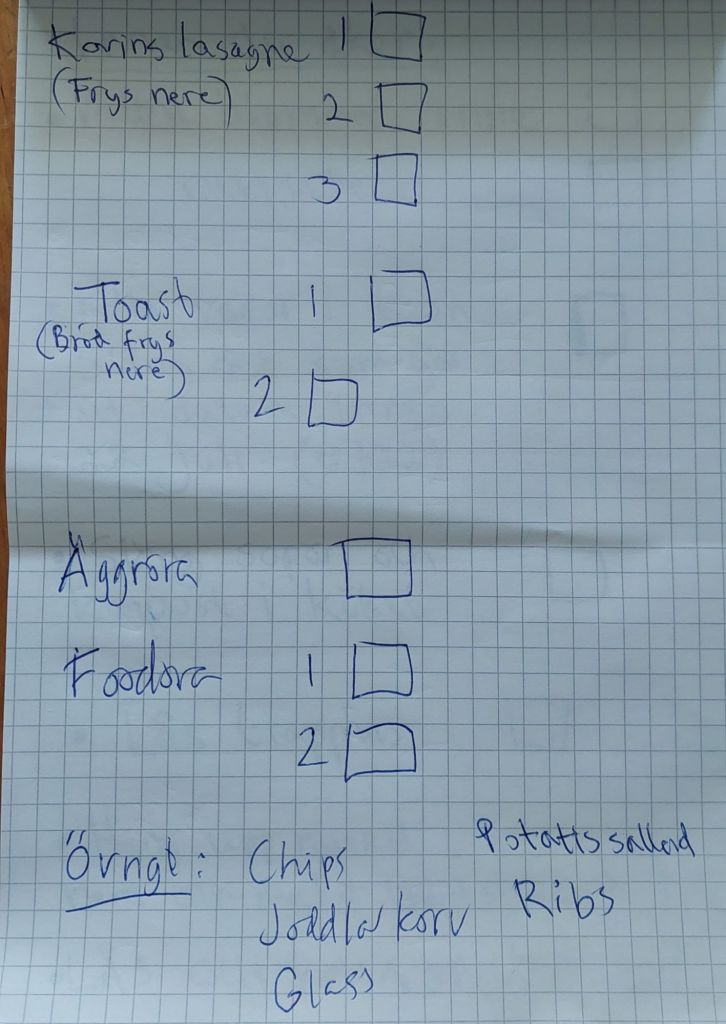 Karins lasagne 1
(Frys nere) 2
3
Toast 1
(Bröd frys
nere)
2
Äggröra
Foodora 1
2
Övrigt: Chips Potatissallad
Ribs
korv
Glass